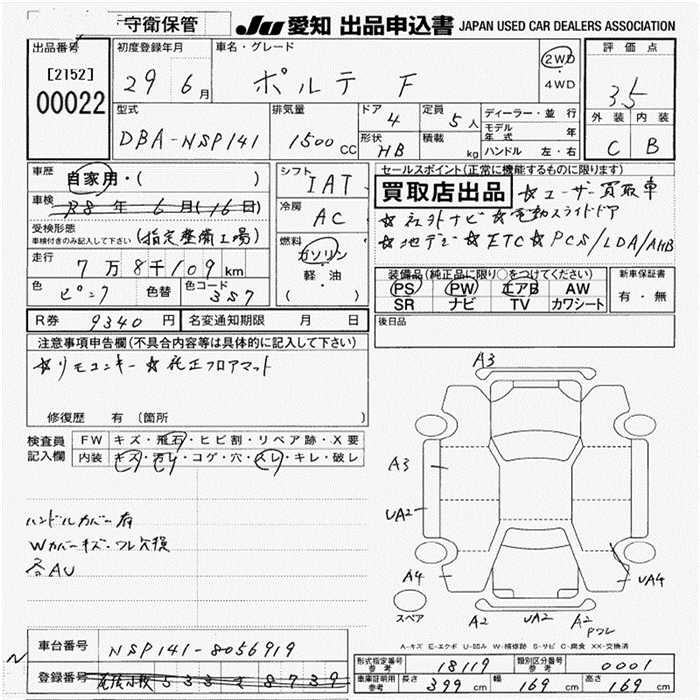 守衛保管 JU 愛知 出品申込書 JAPAN USED CAR DEALERS ASSOCIATION
出品番号 初度登録年月 車名・グレード 2WD ・ 4WD 評価点
[2152] 00022 29 6月 ポルテ F 3.5
外装 内装
C B
型式 排気量 ドア 定員 ディーラー・並行
DBA-NSP141 1500CC 4 5人 モデル年式 年
形状 HB 積載 kg ハンドル 左・右
車歴 自家用・( ) シフト IAT セールスポイント(正常に機能するものに限ります)
買取店出品 ☆ユーザー買取車
車検 R8年6月(16日) 冷房 AC ☆社外ナビ☆電動スライドドア
受検形態 車検付きのみ記入して下さい (指定整備工場) ☆地デジ☆ETC☆PCS/LDA/AHB
走行 7万8千109km 燃料 ガソリン・軽・油 ( )
装備品(純正品に限り○をつけてください) 新車保証書
PS PW エアB AW 有・無
SR ナビ TV カワシート
色 ピンク 色替 色コード 3S7
R券 9340円 名変通知期限 月 日 後日品
注意事項申告欄(不具合内容等は具体的に記入して下さい)
☆リモコンキー☆純正フロアマット
修復歴 有 (箇所
検査員記入欄 FW キズ・飛石・ヒビ割・リペア跡・X要
内装 キズ・汚レ・コゲ・穴・スレ・キレ・破レ
ハンドルカバー有
Wカバーキズ・ワレ欠損
各AU
A3
A3
UA2
A4
UA4
スペア
A2 UA2 A2
Pワレ
A-キズ E-エクボ U-凹み W-補修跡 S-サビ C-腐食 XX-交換済
車台番号 NSP141-8056919
N 登録番号 533 8739
形式指定番号 参考 18119 類別区分番号 参考 0001
車庫証明用 参考 長さ 399cm 幅 169cm 高さ 169cm